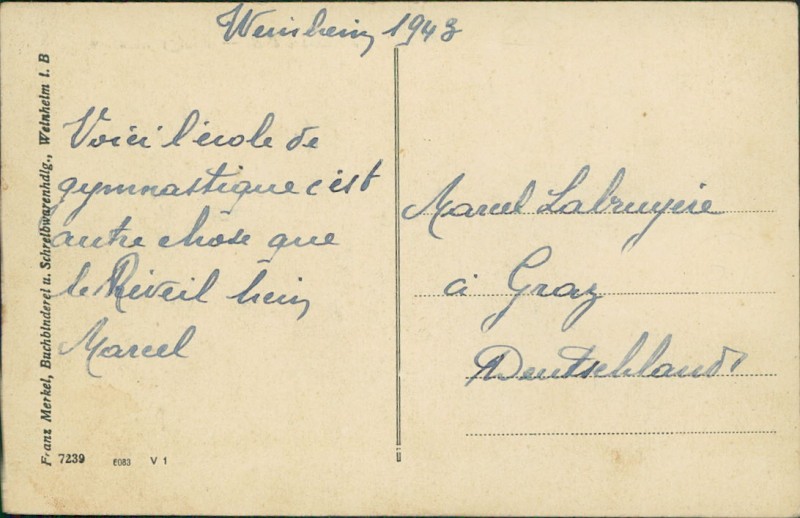 Weinheim 1943
Voici l'école de
gymnastique c'est
autre chose que
le Réveil hein
Marcel
Marcel Labruyère
à Graz
Deutschland
Franz Merkel, Buchbinderei u. Schreibwarenhdlg., Weinheim i. B
7239 6083 V 1